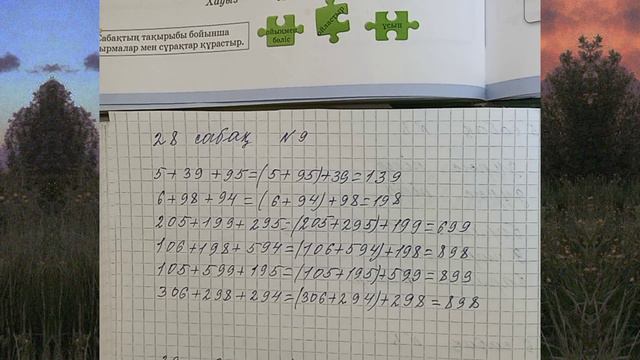 Хауыз
Сабақтың тақырыбы бойынша
ырмалар мен сұрақтар құрастыр.
ойыңмен
бөліс
ойластыр
ұсын
28 сабақ N 9
5+39+95=(5+95)+39=139
6+98+94=(6+94)+98=198
205+199+295=(205+295)+199=699
106+198+594=(106+594)+198=898
105+599+195=(105+195)+599=899
306+298+294=(306+294)+298=898